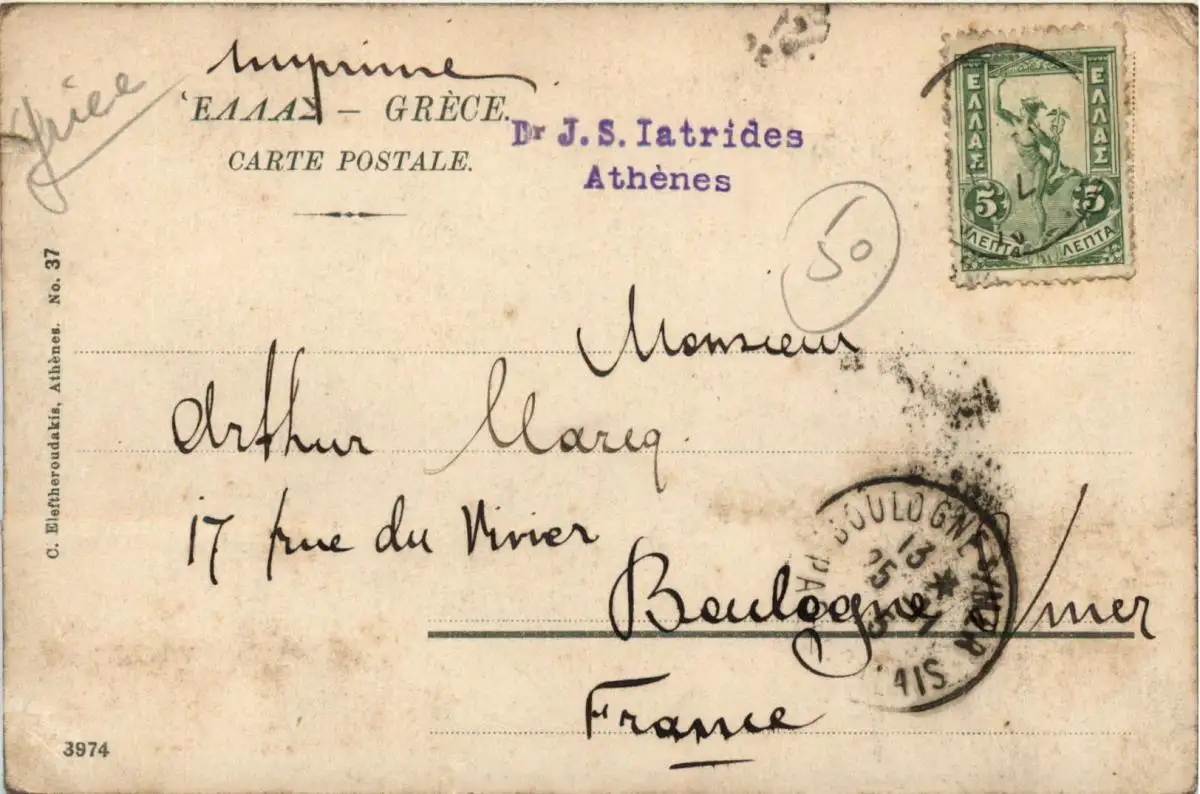 Imprimé
ἙΛΛΑΣ — GRÈCE.
CARTE POSTALE.
Dr J. S. Iatrides
Athènes
ΕΛΛΑΣ
ΕΛΛΑΣ
5
5
ΛΕΠΤΑ
ΛΕΠΤΑ
50
C. Eleftheroudakis, Athènes. No. 37
Monsieur
Arthur Marcq
17 rue du Vivier
Boulogne s/mer
France
BOULOGNE S/MER
13
3974